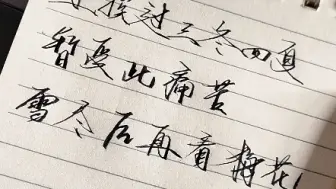 挨过三冬四夏
暂忍此痛苦
雪尽后再看梅花